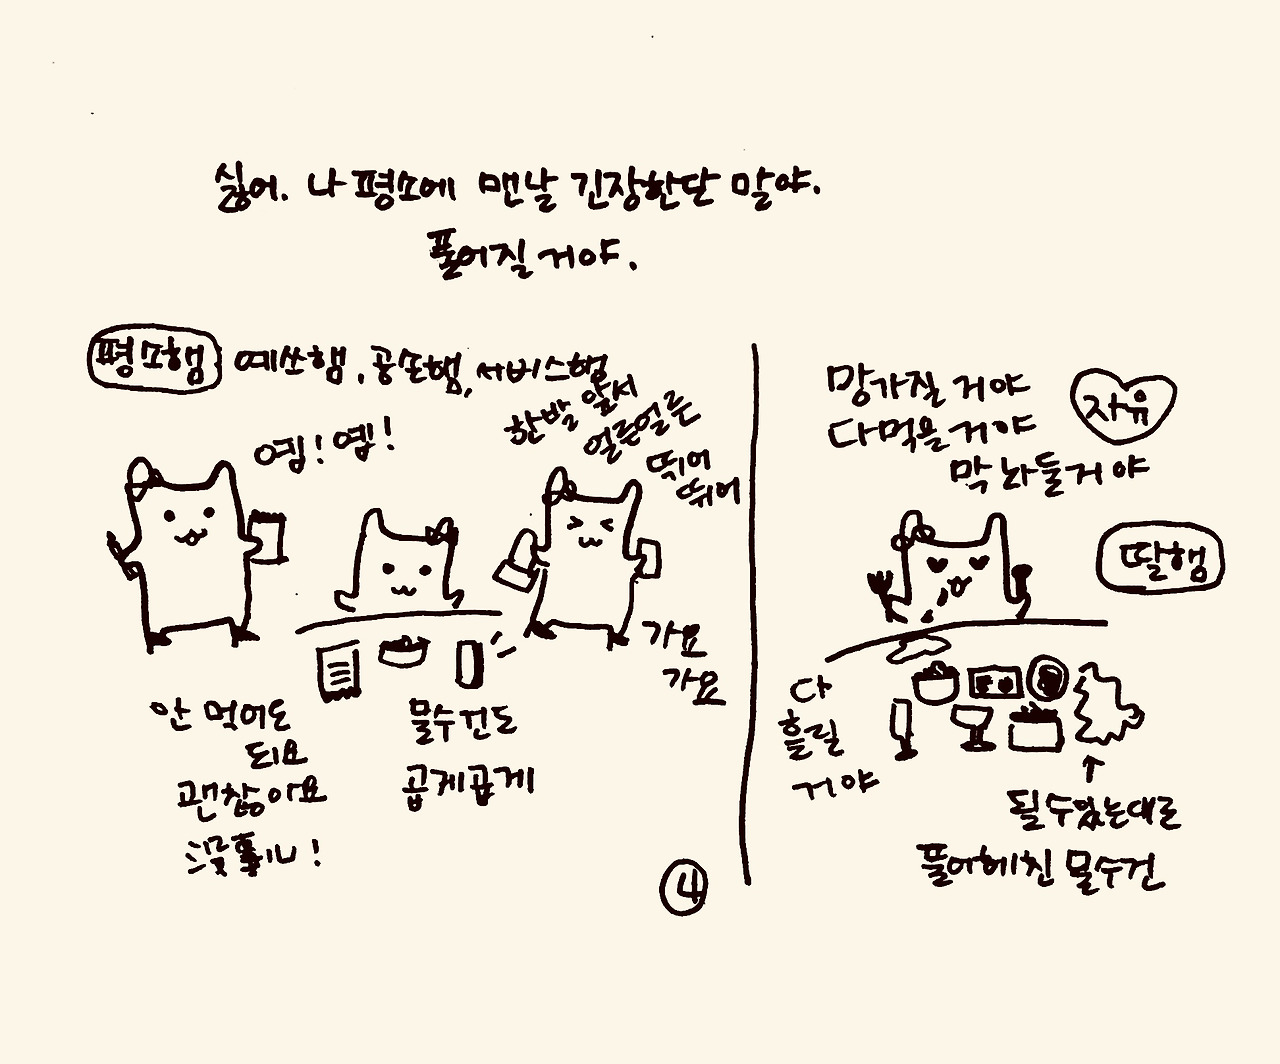 싫어. 나 평소에 맨날 긴장한단 말야.
풀어질 거야.
평소햄
예쓰햄, 공손햄, 서비스햄
옙! 옙!
한발 앞서
얼른얼른
뛰어
뛰어
가요
가요
안 먹어도
되요
괜찮아요
没事儿!
물수건도
곱게곱게
④
망가질 거야
다먹을거야
막 놔둘거야
자유
딸햄
다
흘릴
거야
↑
될수있는대로
풀어헤친 물수건